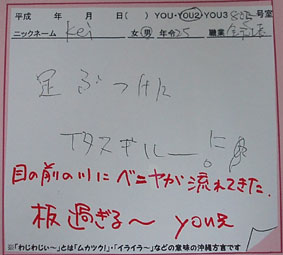 平成　年　月　日（　）YOU・YOU2・YOU3 号室
ニックネーム Kei 女・男 年令25 職業
足ぶつけた
イタスギルー
目の前の川にベニヤが流れてきた。
板過ぎる〜 you兄
※「わじわじぃ〜」とは「ムカツク!」・「イライラ〜」などの意味の沖縄方言です